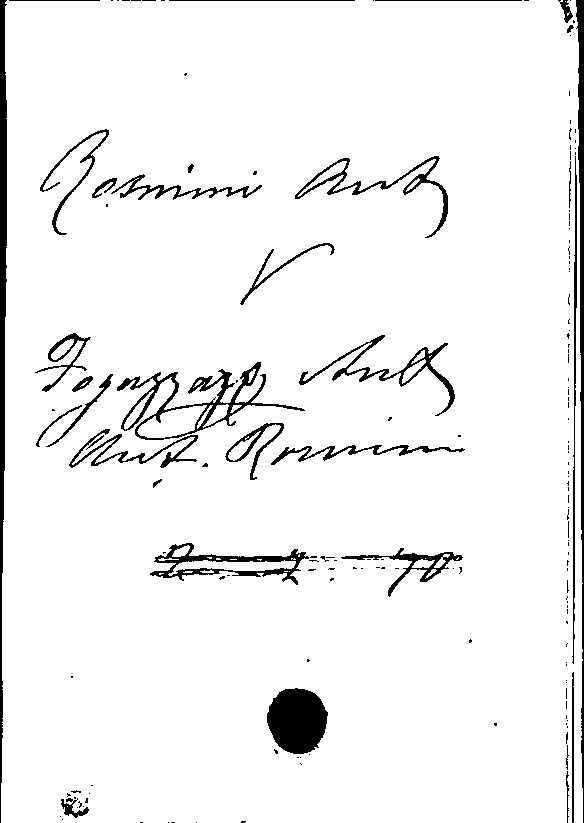 Rosmini Ant
V
Fogazzaro Ant
Ant. Rosmini